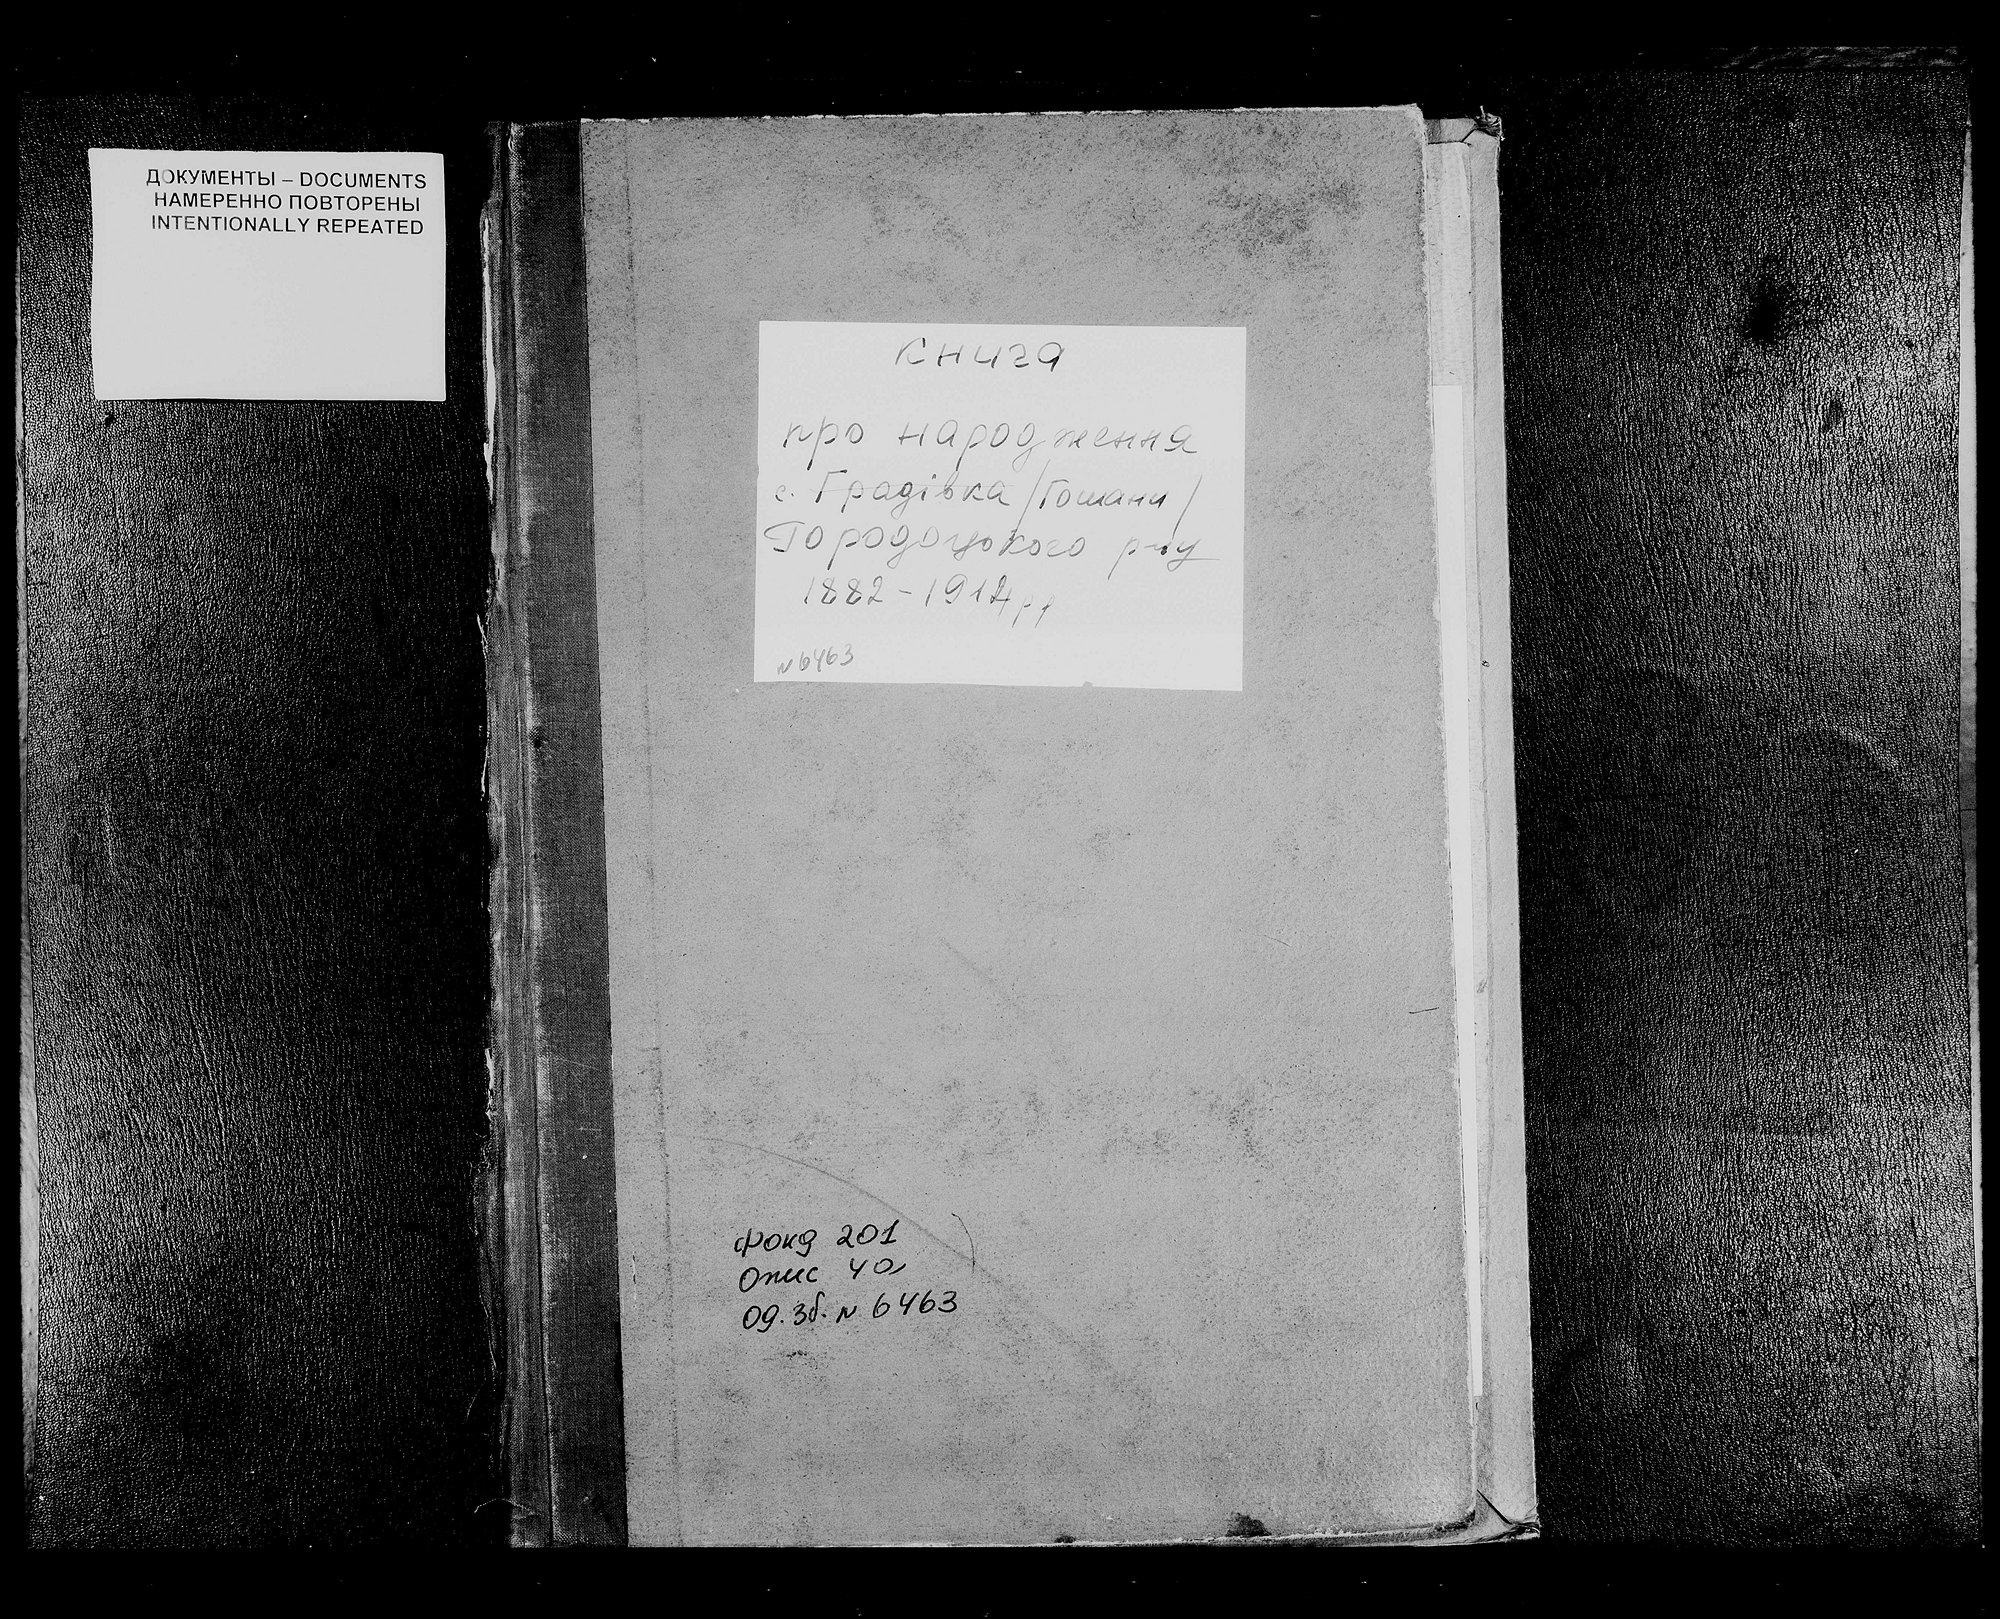 ДОКУМЕНТЫ – DOCUMENTS
НАМЕРЕННО ПОВТОРЕНЫ
INTENTIONALLY REPEATED
книга
про народження
с. Градівка /Гошани/
Городоцького р-ну
1882-1914рр
№6463
Фонд 201
Опис 4а
Од. зб. № 6463